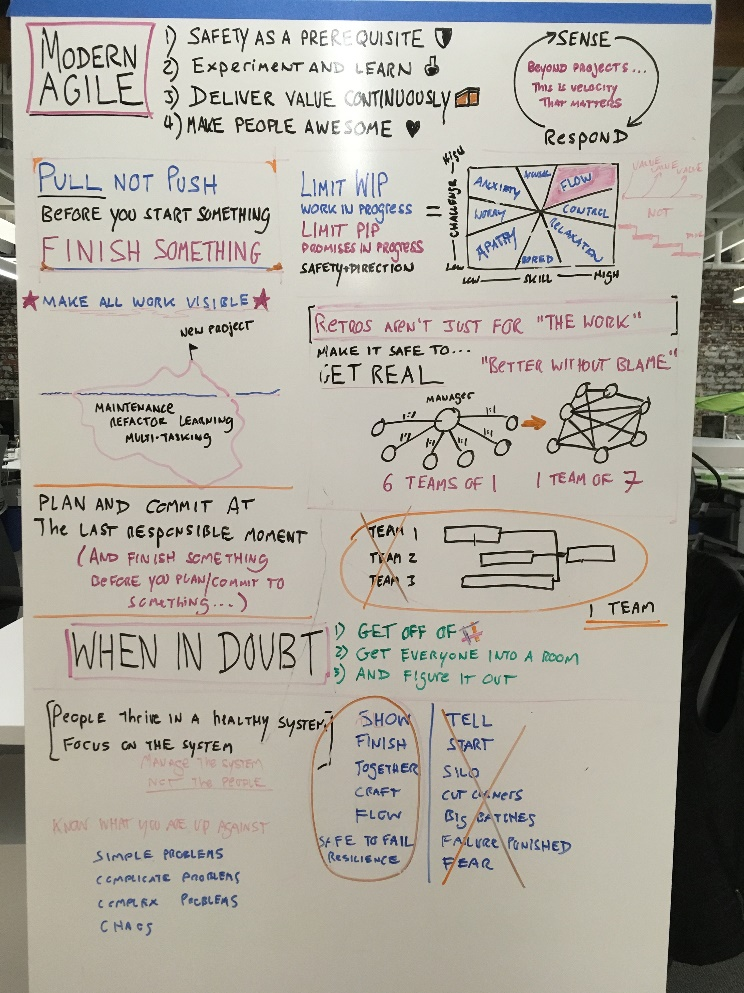 MODERN
AGILE
1) SAFETY AS A PREREQUISITE
2) EXPERIMENT AND LEARN
3) DELIVER VALUE CONTINUOUSLY
4) MAKE PEOPLE AWESOME
SENSE
BEYOND PROJECTS...
THIS IS VELOCITY
THAT MATTERS
RESPOND
PULL NOT PUSH
BEFORE YOU START SOMETHING
FINISH SOMETHING
LIMIT WIP
WORK IN PROGRESS
LIMIT PIP
PROMISES IN PROGRESS
SAFETY+DIRECTION
=
HIGH
CHALLENGE
LOW
ANXIETY
AROUSAL
FLOW
WORRY
CONTROL
APATHY
BORED
RELAXATION
LOW SKILL HIGH
VALUE VALUE VALUE
NOT
MAKE ALL WORK VISIBLE
NEW PROJECT
MAINTENANCE
REFACTOR LEARNING
MULTI-TASKING
RETROS AREN'T JUST FOR "THE WORK"
MAKE IT SAFE TO...
GET REAL
"BETTER WITHOUT BLAME"
MANAGER
1:1
1:1
1:1
1:1
1:1
1:1
6 TEAMS OF 1
1 TEAM OF 7
PLAN AND COMMIT AT
THE LAST RESPONSIBLE MOMENT
(AND FINISH SOMETHING
BEFORE YOU PLAN/COMMIT TO
SOMETHING...)
TEAM 1
TEAM 2
TEAM 3
1 TEAM
WHEN IN DOUBT
1) GET OFF OF
2) GET EVERYONE INTO A ROOM
3) AND FIGURE IT OUT
PEOPLE THRIVE IN A HEALTHY SYSTEM
FOCUS ON THE SYSTEM
MANAGE THE SYSTEM
NOT THE PEOPLE
KNOW WHAT YOU ARE UP AGAINST
SIMPLE PROBLEMS
COMPLICATE PROBLEMS
COMPLEX PROBLEMS
CHAOS
SHOW
FINISH
TOGETHER
CRAFT
FLOW
SAFE TO FAIL
RESILIENCE
TELL
START
SILO
CUT CORNERS
BIG BATCHES
FAILURE PUNISHED
FEAR